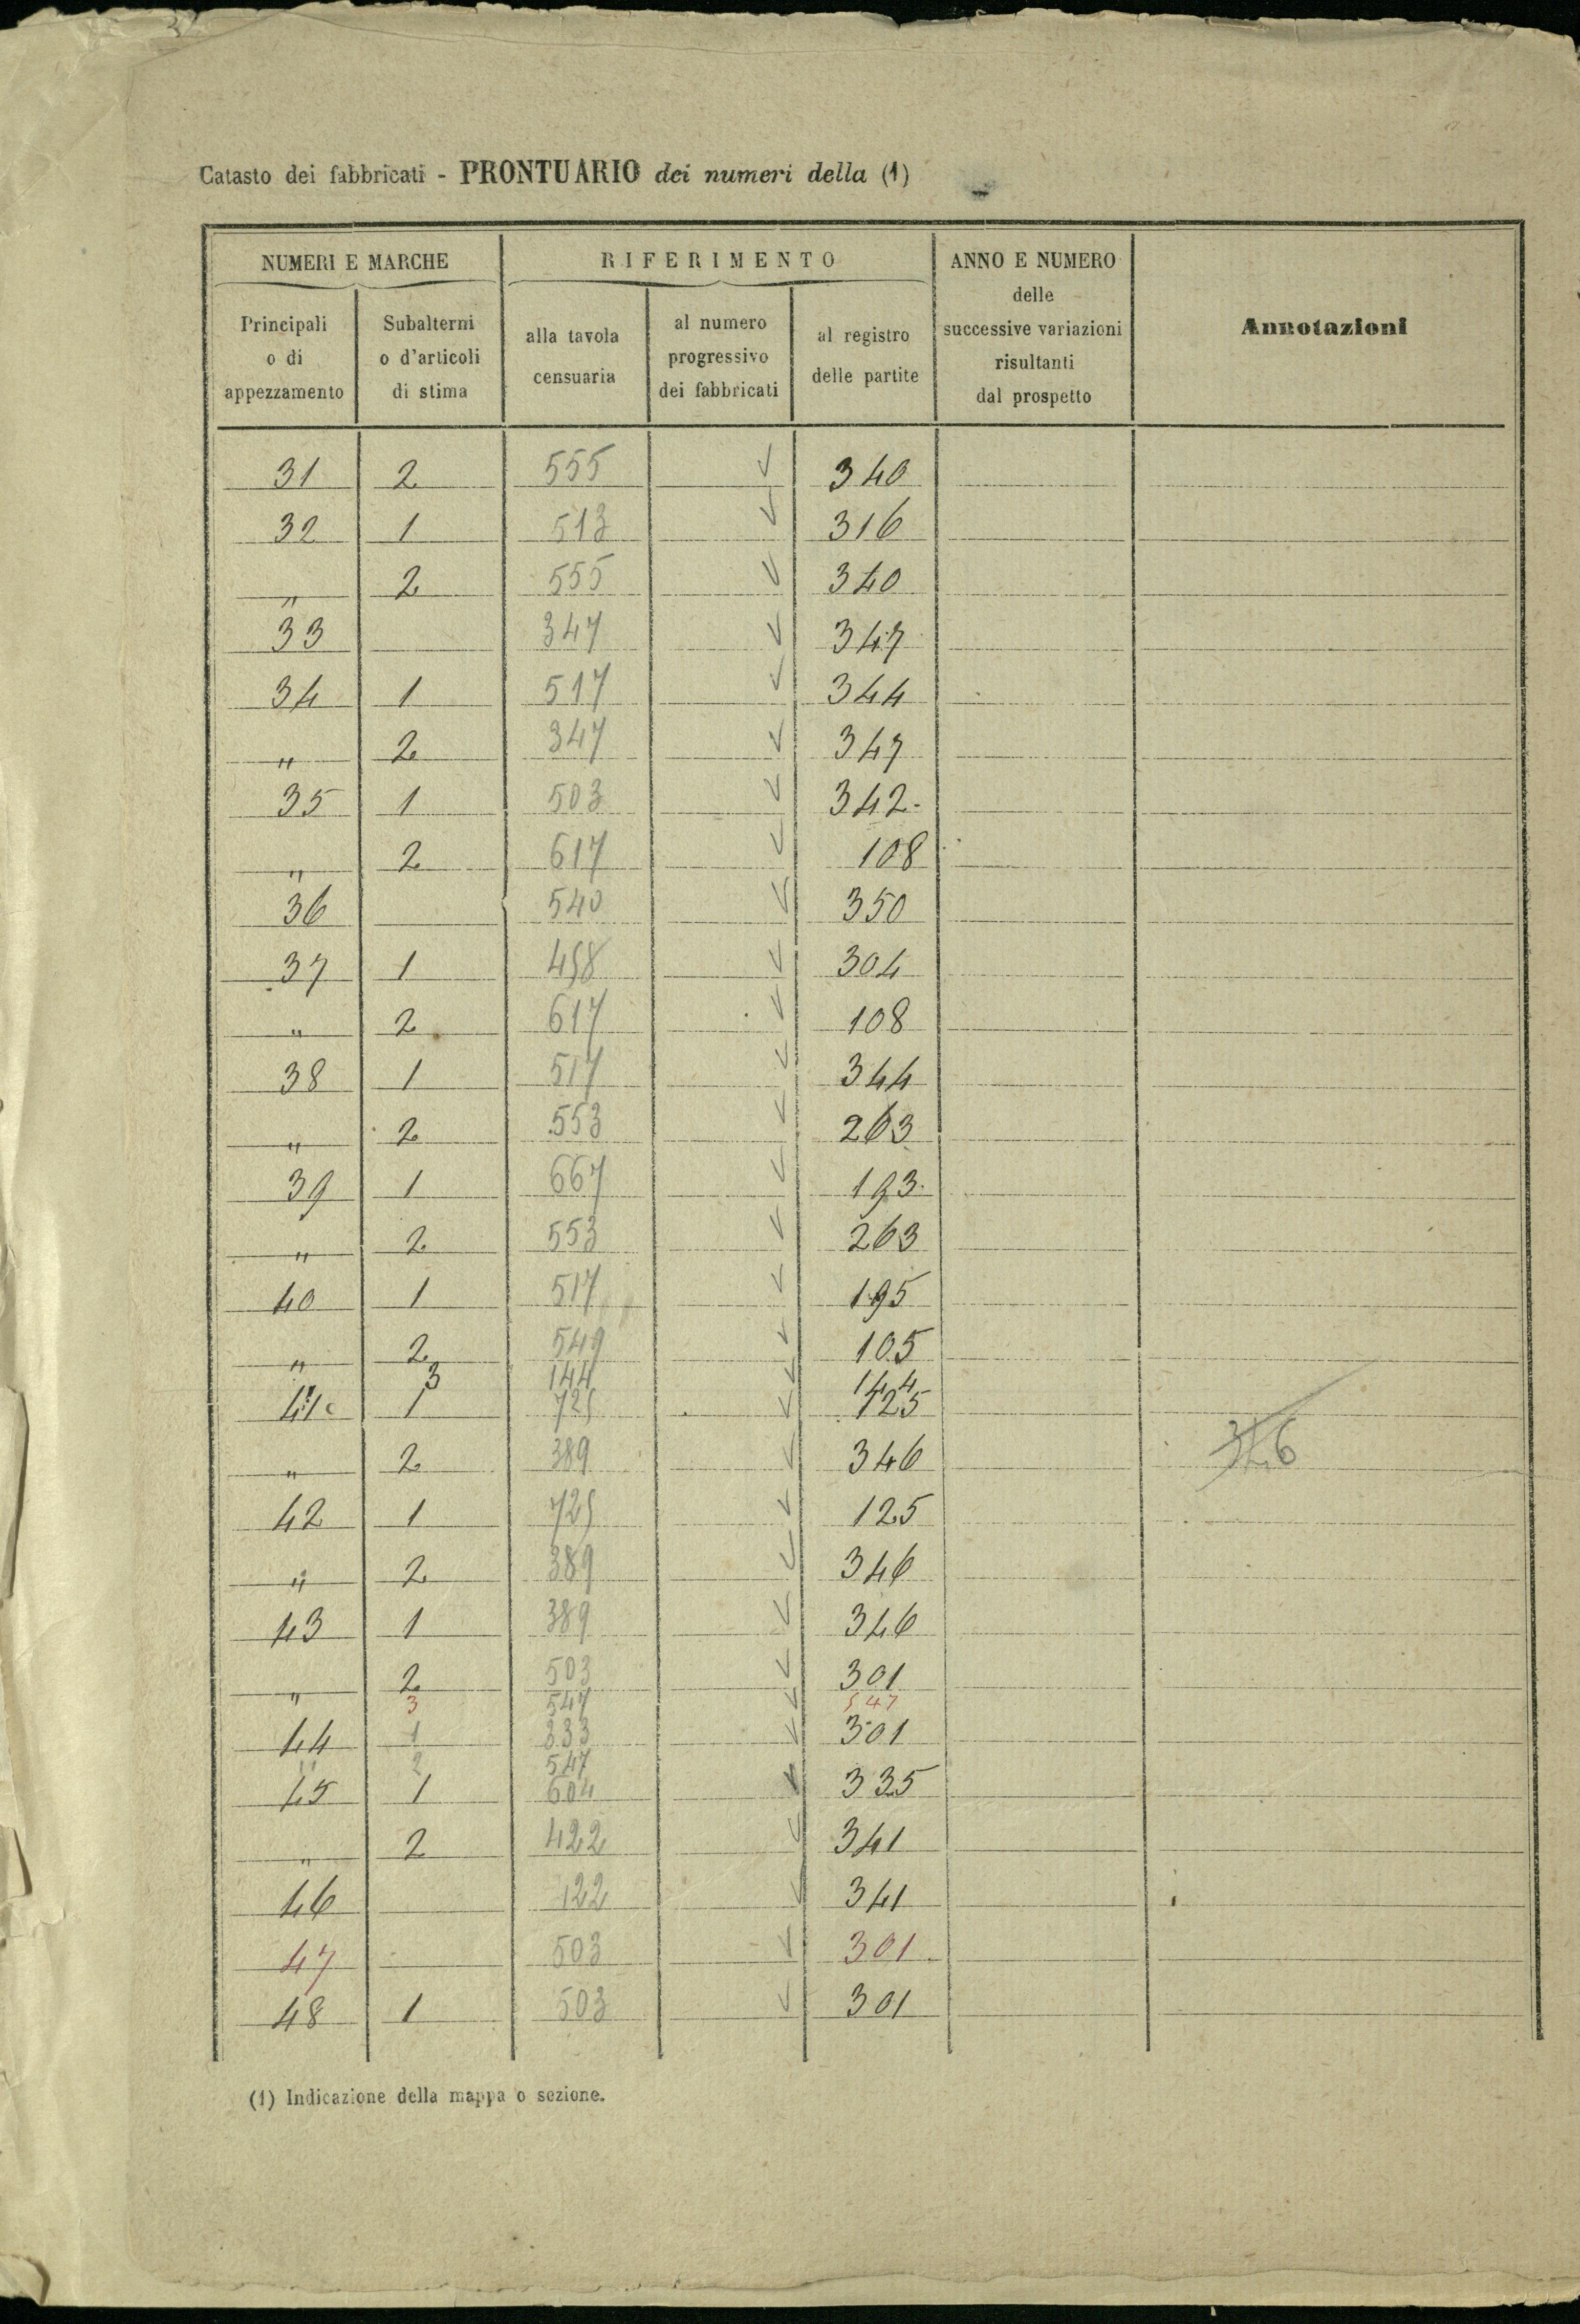 Catasto dei fabbricati - PRONTUARIO dei numeri della (1)
NUMERI E MARCHE
RIFERIMENTO
ANNO E NUMERO delle successive variazioni risultanti dal prospetto
Annotazioni
Principali o di appezzamento
Subalterni o d'articoli di stima
alla tavola censuaria
al numero progressivo dei fabbricati
al registro delle partite
31 2 555 ✓ 340
32 1 513 ✓ 316
" 2 555 ✓ 340
33 347 ✓ 347
34 1 517 ✓ 344
" 2 347 ✓ 347
35 1 503 ✓ 342
" 2 617 ✓ 108
36 540 ✓ 350
37 1 458 ✓ 304
" 2 617 ✓ 108
38 1 517 ✓ 344
" 2 553 ✓ 263
39 1 667 ✓ 193
" 2 553 ✓ 263
40 1 517 ✓ 195
" 2 549 ✓ 105
" 3 144 ✓ 144
41 1 725 ✓ 125
" 2 389 ✓ 346 346
42 1 725 ✓ 125
" 2 389 ✓ 346
43 1 389 ✓ 346
" 2 503 ✓ 301
3 547 ✓ 547
44 1 333 ✓ 301
" 2 547
45 1 604 ✓ 335
" 2 422 ✓ 341
46 ✓ 341
47 503 ✓ 301
48 1 503 ✓ 301
(1) Indicazione della mappa o sezione.